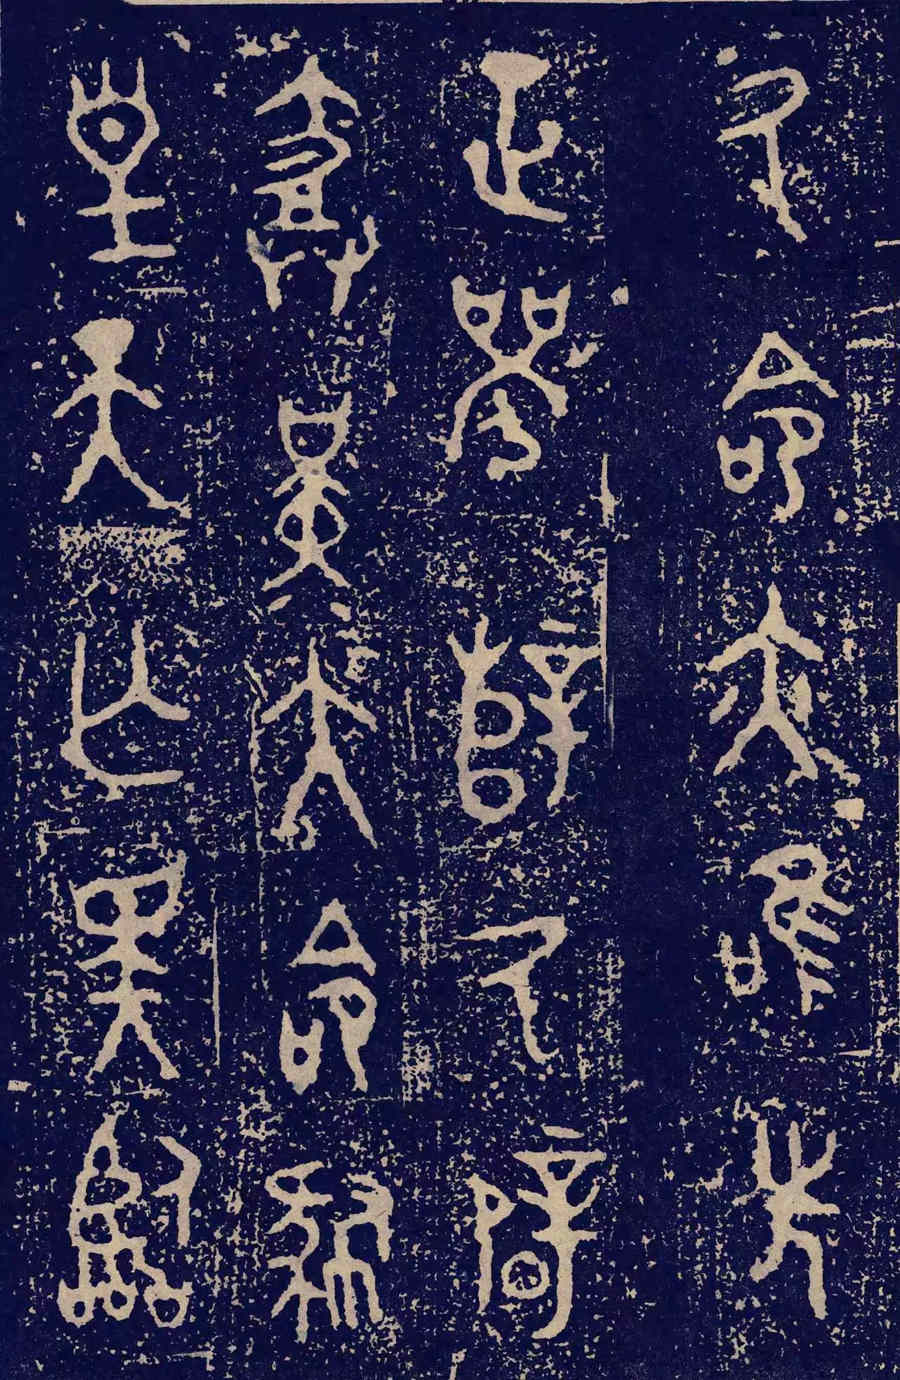 氒命亦唯先
正襄辥氒辟
堇大命肆
皇天亡斁臨